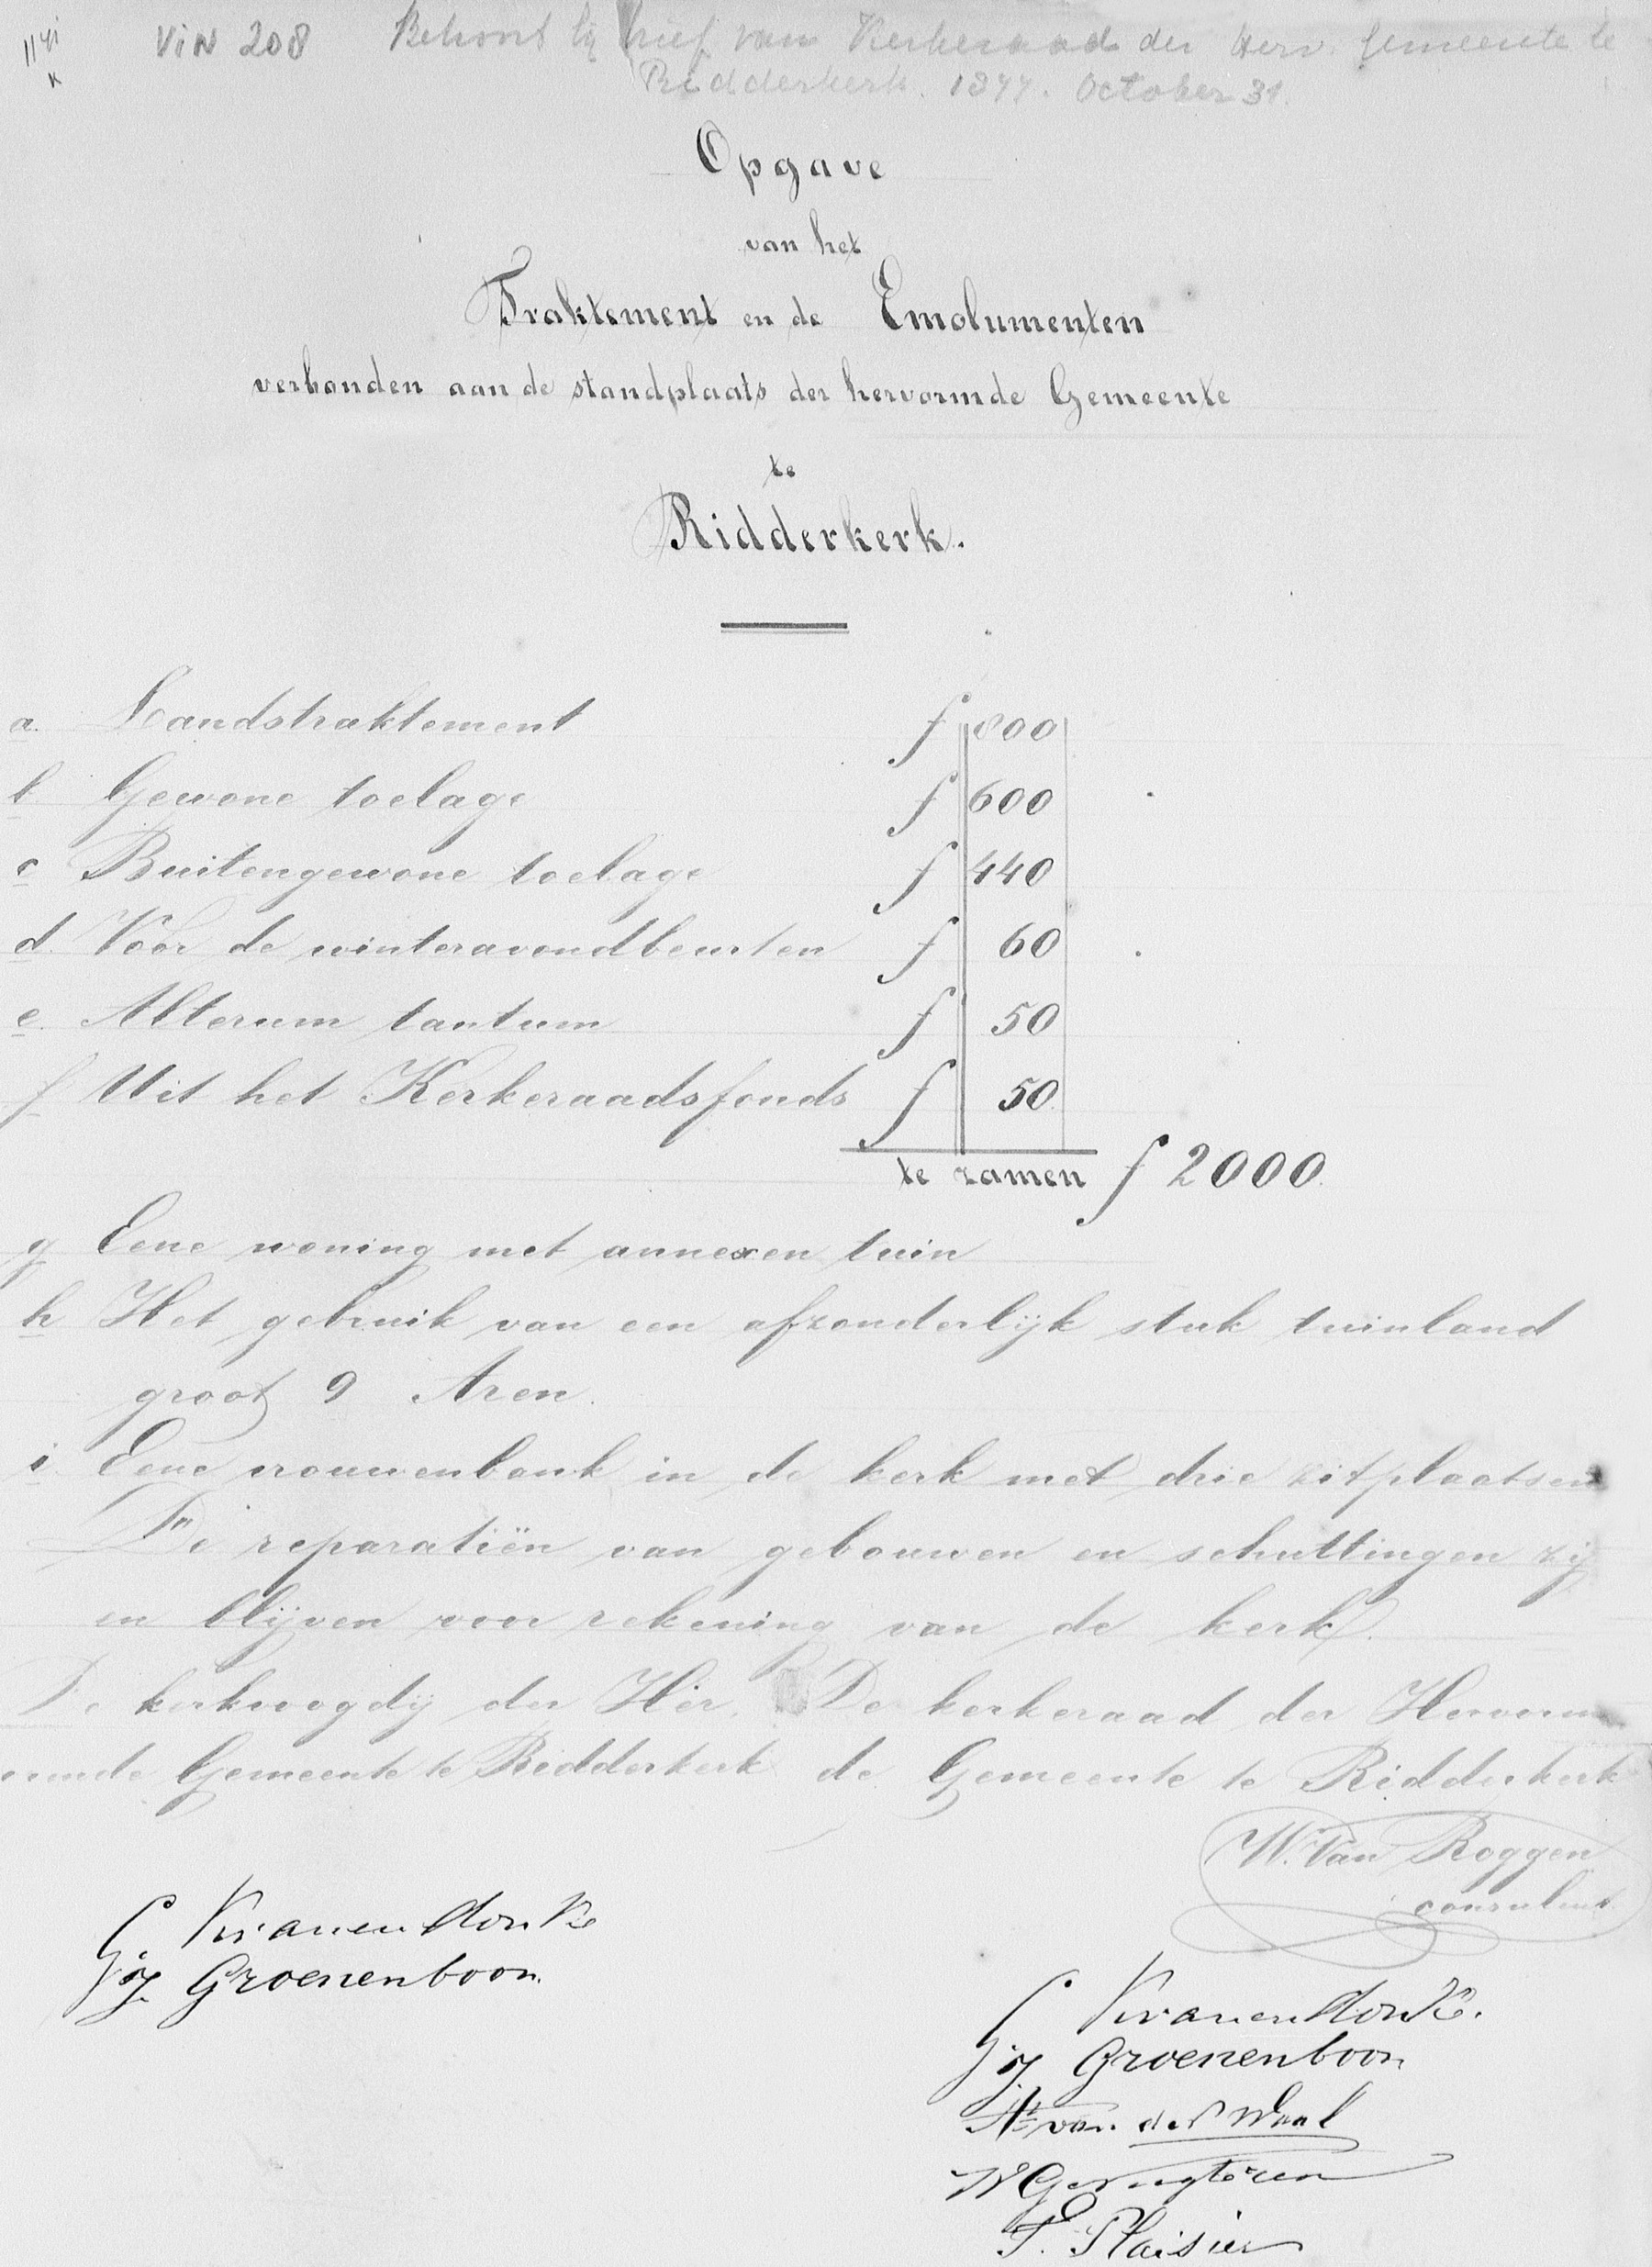 VIN 208 Behoort bij brief van Kerkeraad der Herv. Gemeente te
Ridderkerk. 1877. October 31.
Opgave
van het
Traktement en de Emolumenten
verbonden aan de standplaats der hervormde Gemeente
te
Ridderkerk.
a. Landstraktement f 800
b Gewone toelage f 600
c Buitengewone toelage f 440
d. Voor de winteravondbeurten f 60
e. Alterum tantum f 50
f Uit het Kerkeraadsfonds f 50
te zamen f 2000.
g Eene woning met annexen tuin
h Het gebruik van een afzonderlijk stuk tuinland
groot 9 Aren.
i Eene vrouwenbank in de kerk met drie zitplaatsen
De reparatiën van gebouwen en schuttingen zij
en blijven voor rekening van de kerk.
De kerkvoogdij der Her. De kerkeraad der Hervorm
vormde Gemeente te Ridderkerk de Gemeente te Ridderkerk
W. Van Roggen
consulent
G Kranendonk
G J Groenenboom
G Kranendonk.
G J Groenenboom
van der Waal
Plaisier